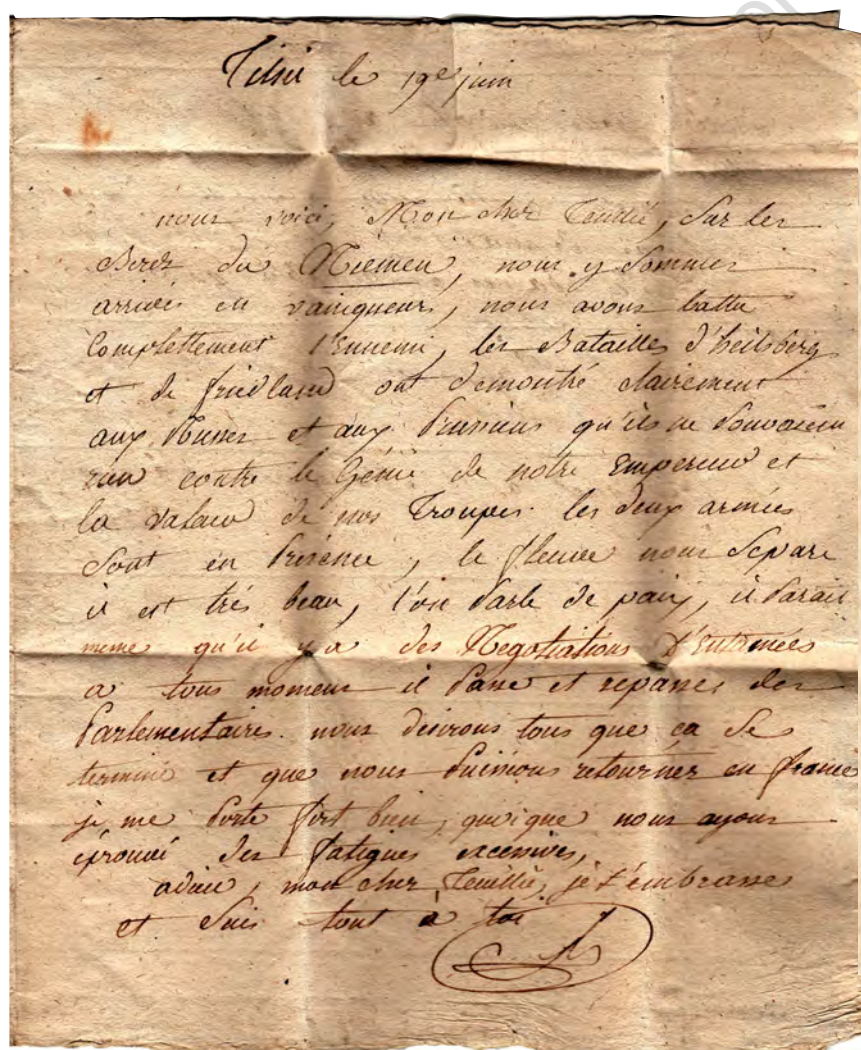 Tilsit le 19e juin
nous voici, Mon cher Teuillié, Sur les
Bords du Niemen, nous y sommes
arrivés en vainqueurs, nous avons battu
Complettement l'Ennemi, les Batailles d'heilsberg
et de friedland ont demontré clairement
aux Russes et aux Prussiens qu'ils ne Pouvaient
rien contre le Génie de notre Empereur et
la valeur de nos Troupes. les deux armées
Sont en Présence, le fleuve nous Separe
il est très beau, l'on Parle de paix, il Parait
meme qu'il y a des Negotiations d'Entamées
a tous moment il Passe et repasse des
Parlementaires. nous desirons tous que ça Se
termine et que nous Puissions retourner en france
je me Porte fort bien, quoique nous ayons
éprouvé des fatigues excessives,
adieu, mon cher Teuillié, je t'embrasse
et Suis tout à toi